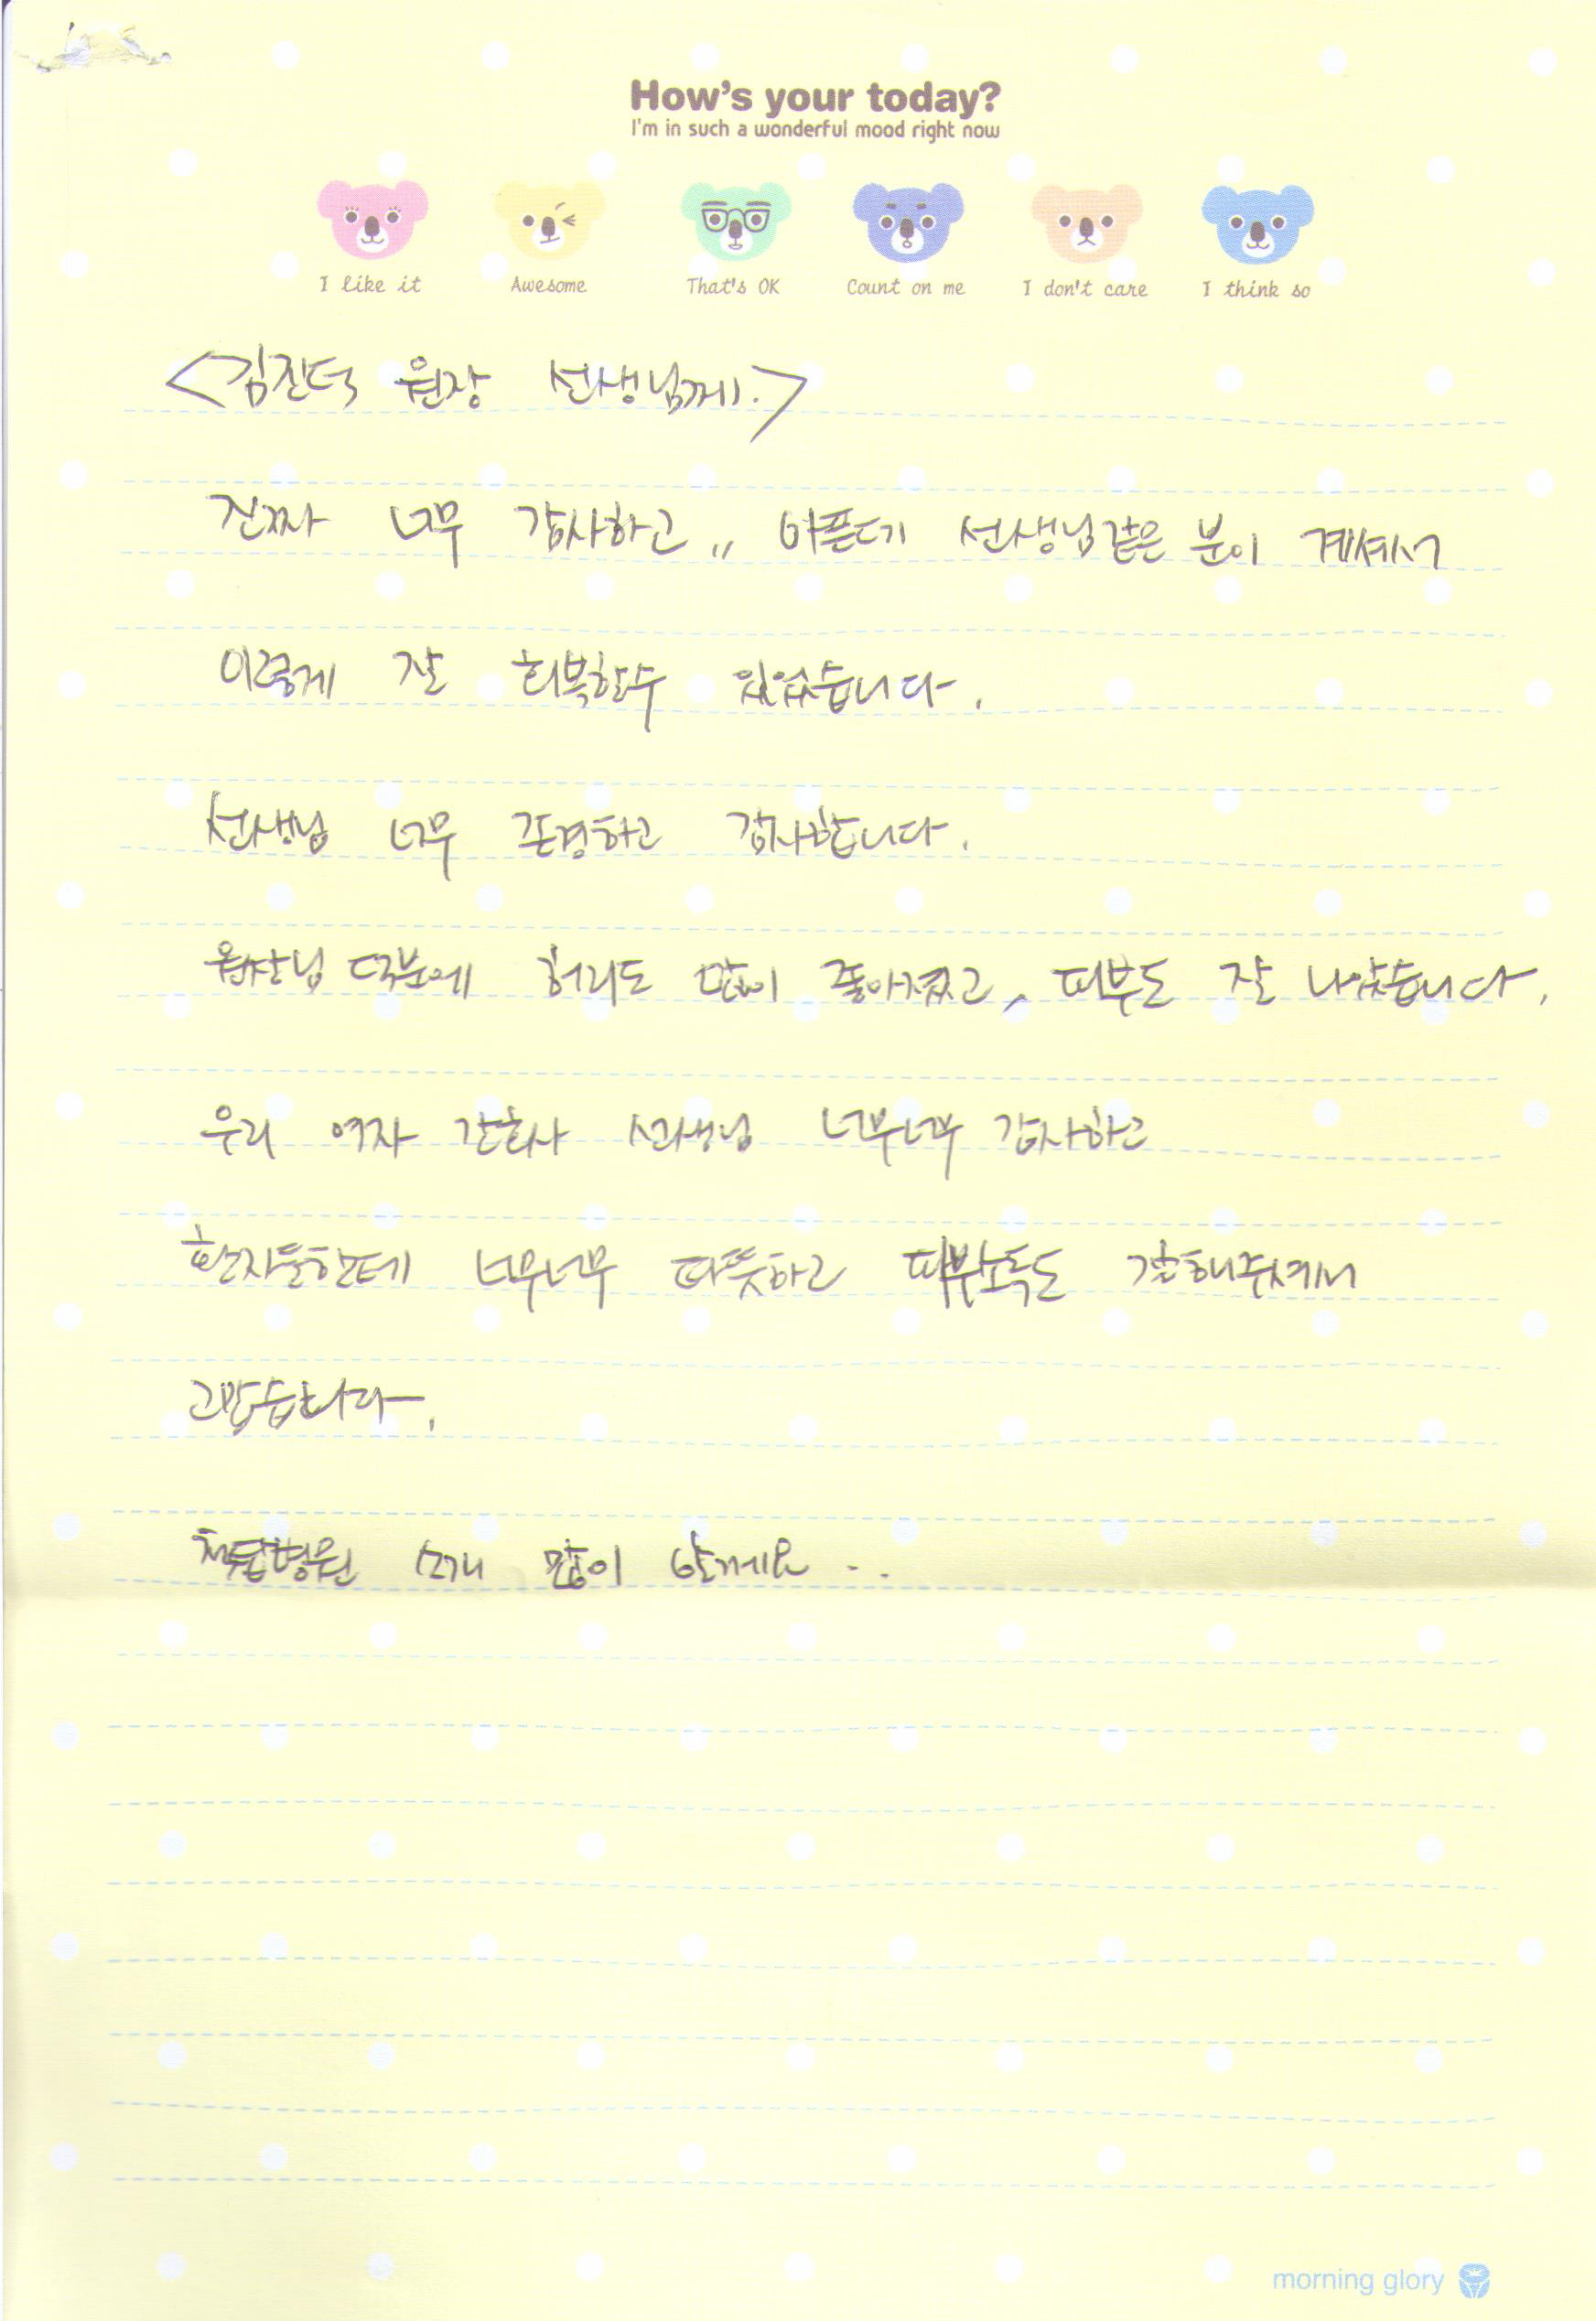 How's your today?
I'm in such a wonderful mood right now
I like it Awesome That's OK Count on me I don't care I think so
<김진덕 원장 선생님께.>
진짜 너무 감사하고,, 아픈데 선생님같은 분이 계셔서
이렇게 잘 회복할수 있었습니다.
선생님 너무 존경하고 감사합니다.
원장님 덕분에 허리도 많이 좋아졌고, 피부도 잘 나았습니다.
우리 여자 간호사 선생님 너무너무 감사하고
환자들한테 너무너무 따뜻하고 피부소독도 잘해주셔서
고맙습니다.
병원 소개 많이 할게요 ..
morning glory